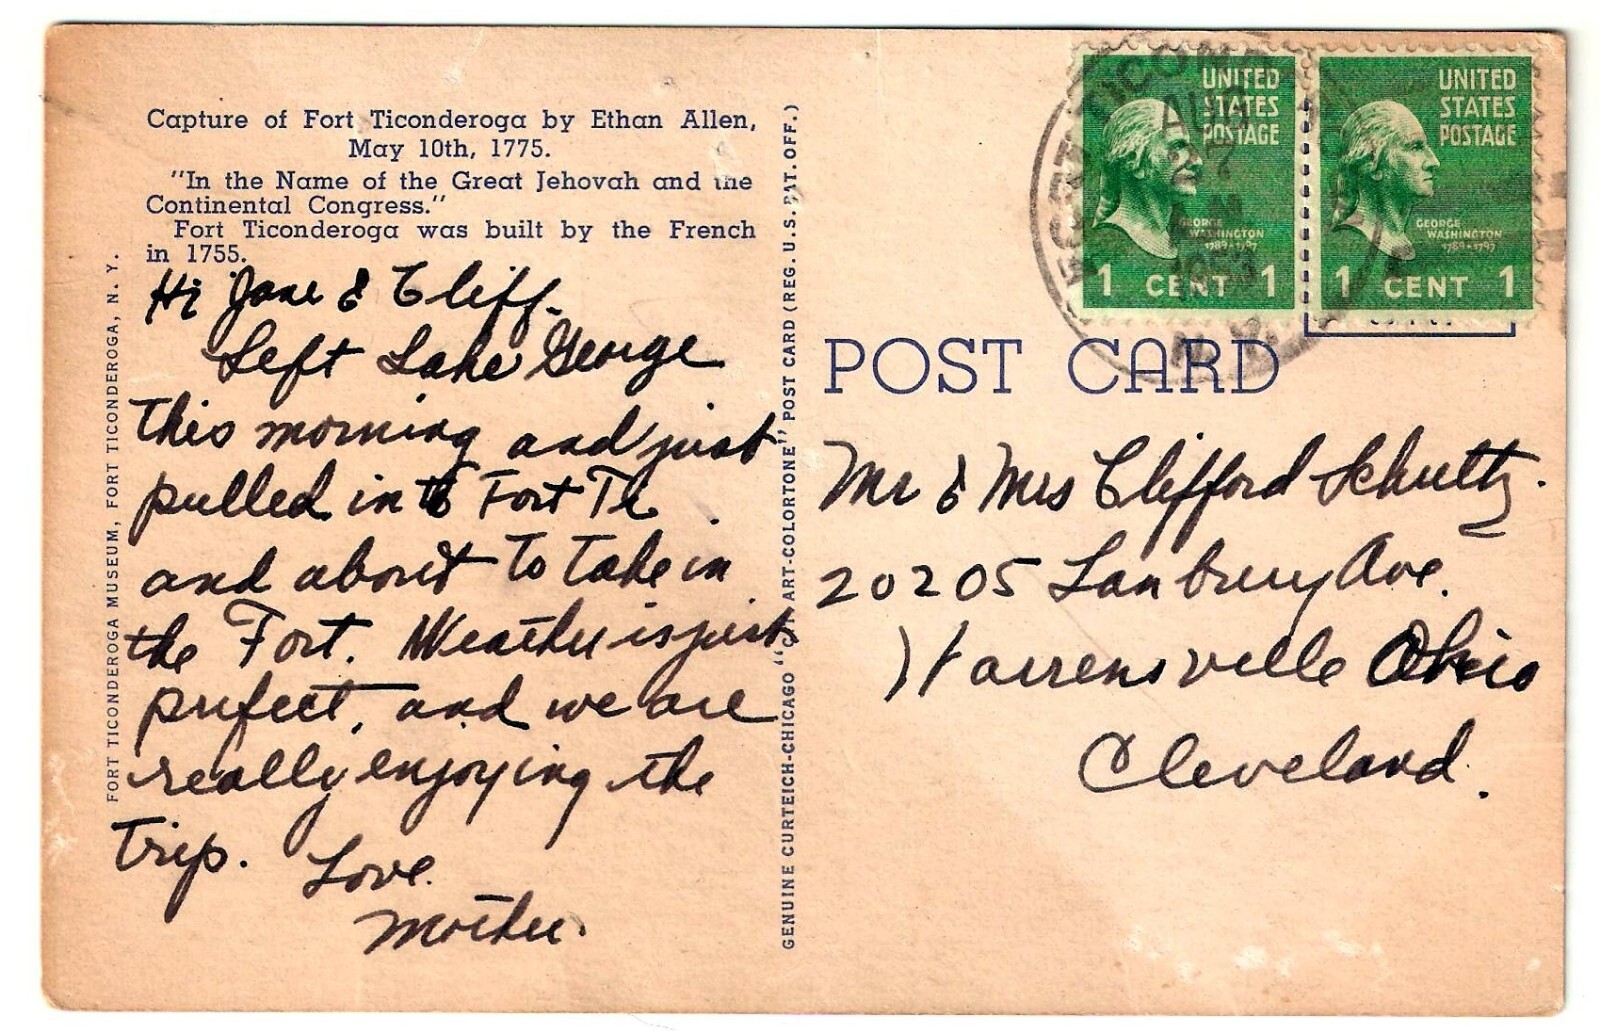 Capture of Fort Ticonderoga by Ethan Allen,
May 10th, 1775.
"In the Name of the Great Jehovah and the
Continental Congress."
Fort Ticonderoga was built by the French
in 1755.
Hi Jane & Cliff.
Left Lake George
this morning and just
pulled in to Fort Ti
and about to take in
the Fort. Weather is just
perfect, and we are
really enjoying the
trip.
Love.
Mother.
FORT TICONDEROGA MUSEUM, FORT TICONDEROGA, N. Y.
GENUINE CURTEICH-CHICAGO "C.T. ART-COLORTONE" POST CARD (REG. U. S. PAT. OFF.)
UNITED
STATES
POSTAGE
GEORGE
WASHINGTON
1789-1797
1 CENT 1
UNITED
STATES
POSTAGE
GEORGE
WASHINGTON
1789-1797
1 CENT 1
FORT TICONDEROGA
AUG
27
1953
N.Y.
POST CARD
Mr & Mrs Clifford Schultz.
20205 Lanbury Ave.
Warrensville Ohio
Cleveland.